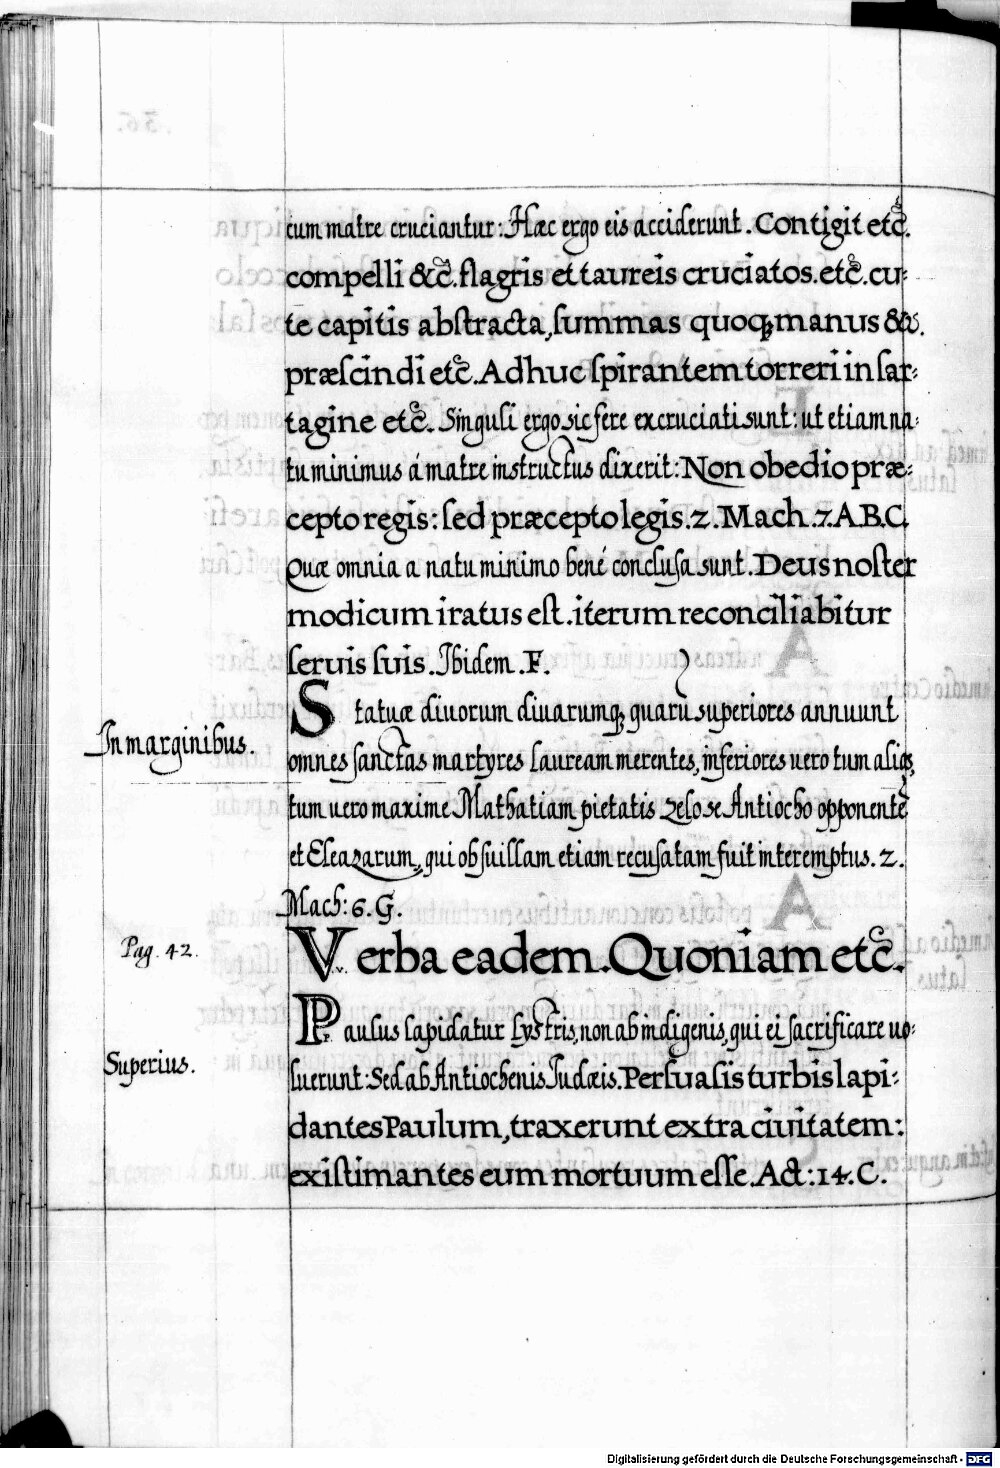 cum matre cruciantur: Hæc ergo eis acciderunt. Contigit etc̃.
compelli &c̃. flagris et taureis cruciatos. etc̃. cu-
te capitis abstracta, summas quoq; manus &c.
præscindi etc̃. Adhuc spirantem torreri in sar-
tagine etc̃. Singuli ergo sic fere excruciati sunt: ut etiam na-
tu minimus á matre instructus dixerit: Non obedio præ-
cepto regis: sed præcepto legis. 2. Mach. 7. A.B.C.
Quæ omnia a natu minimo bené conclusa sunt. Deus noster
modicum iratus est. iterum reconciliabitur
seruis suis. Ibidem. F.
Statuæ diuorum diuarumq; quarũ superiores annuunt
In marginibus.
omnes sanctas martyres lauream merentes, inferiores uero tum aliqs,
tum uero maxime Mathatiam pietatis zelo se Antiocho opponentẽ
et Eleazarum, qui ob suillam etiam recusatam fuit interemptus. 2.
Mach: 6. G.
Pag. 42.
Verba eadem. Quoniam etc̃.
Paulus lapidatur Lystris, non ab indigenis, qui ei sacrificare uo-
Superius.
luerunt: Sed ab Antiochenis Judæis. Persuasis turbis lapi-
dantes Paulum, traxerunt extra ciuitatem:
existimantes eum mortuum esse. Act: 14. C.
Digitalisierung gefördert durch die Deutsche Forschungsgemeinschaft - DFG